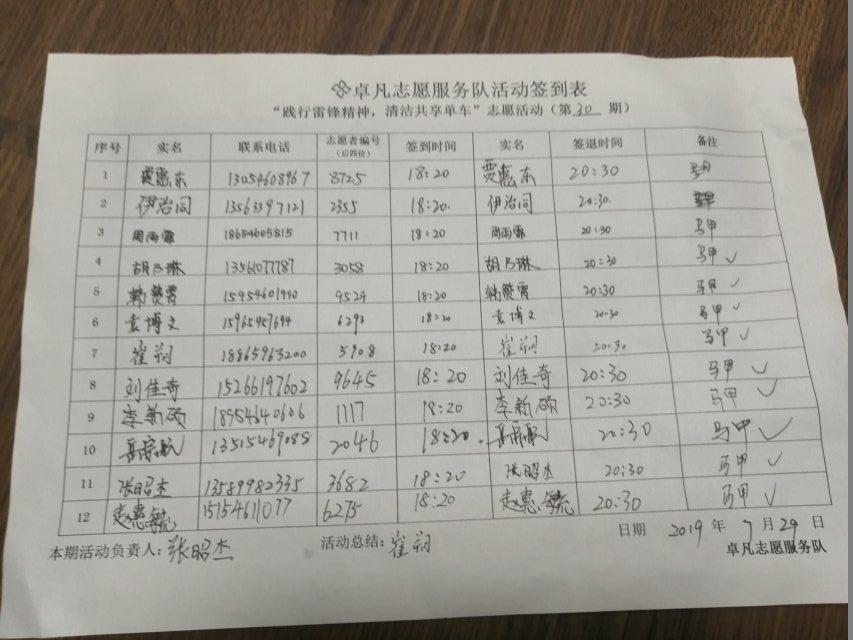 卓凡志愿服务队活动签到表
“践行雷锋精神，清洁共享单车”志愿活动（第 30 期）
序号 实名 联系电话 志愿者编号（后四位） 签到时间 实名 签退时间 备注
1 贾惠东 13054608967 8725 18:20 贾惠东 20:30
2 伊治同 13563397121 2355 18:20. 伊治同 20:30.
3 周雨霏 18684605815 7711 18:20 周雨霏 20:30 马甲
4 胡乃琳 13561077787 3058 18:20 胡乃琳 20:30 马甲 ✓
5 韩赟霄 15954601990 9524 18:20 韩赟霄 20:30 马甲 ✓
6 袁博文 15965457694 6293 18:20 袁博文 20:30 马甲 ✓
7 崔翔 18865963200 5908 18:20 崔翔 20:30 马甲 ✓
8 刘佳奇 15266197602 9645 18:20 刘佳奇 20:30 马甲 ✓
9 李新硕 18954640606 1117 18:20 李新硕 20:30 马甲 ✓
10 2046 18:20. 20:30 马甲 ✓
11 张昭杰 13589982335 3682 18:20 张昭杰 20:30 马甲 ✓
12 赵惠毓 15154611077 6275 18:20 赵惠毓 20:30 马甲 ✓
日期 2019 年 7 月 29 日
本期活动负责人：张昭杰 活动总结：崔翔 卓凡志愿服务队